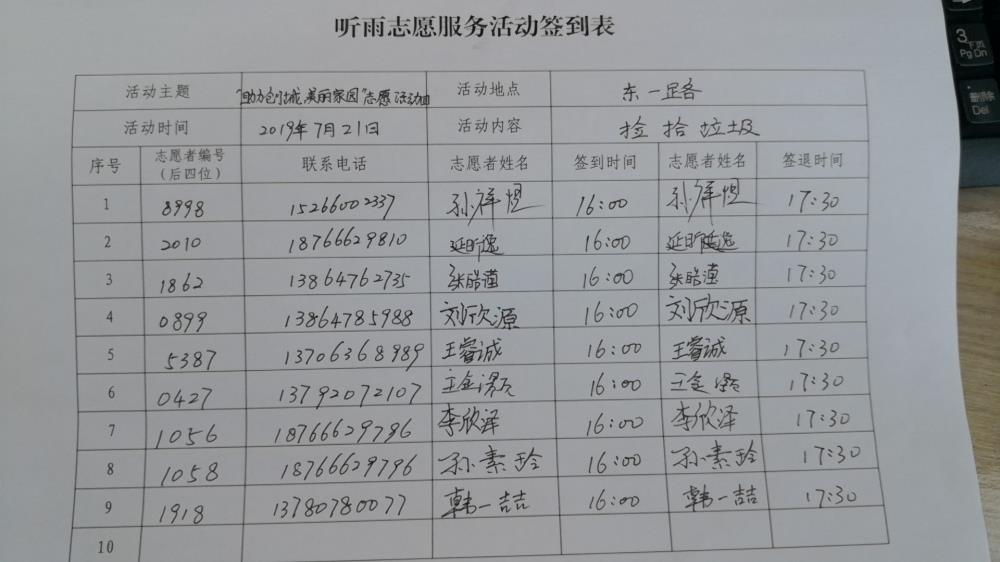 听雨志愿服务活动签到表
活动主题 "助力创城,美丽家园"志愿活动 活动地点 东一路
活动时间 2019年7月21日 活动内容 捡拾垃圾
序号 志愿者编号(后四位) 联系电话 志愿者姓名 签到时间 志愿者姓名 签退时间
1 8998 15266002337 孙祥愷 16:00 孙祥愷 17:30
2 2010 18766629810 延昕逸 16:00 延昕逸 17:30
3 1862 13864762735 张皓谨 16:00 张皓谨 17:30
4 0899 13864785988 刘欣源 16:00 刘欣源 17:30
5 5387 13706368989 王睿诚 16:00 王睿诚 17:30
6 0427 13792072107 王金 16:00 王金 17:30
7 1056 18766629796 李欣泽 16:00 李欣泽 17:30
8 1058 18766629796 孙素玲 16:00 孙素玲 17:30
9 1918 13780780077 韩一喆 16:00 韩一喆 17:30
10
3 下页 PgDn
删除 Del